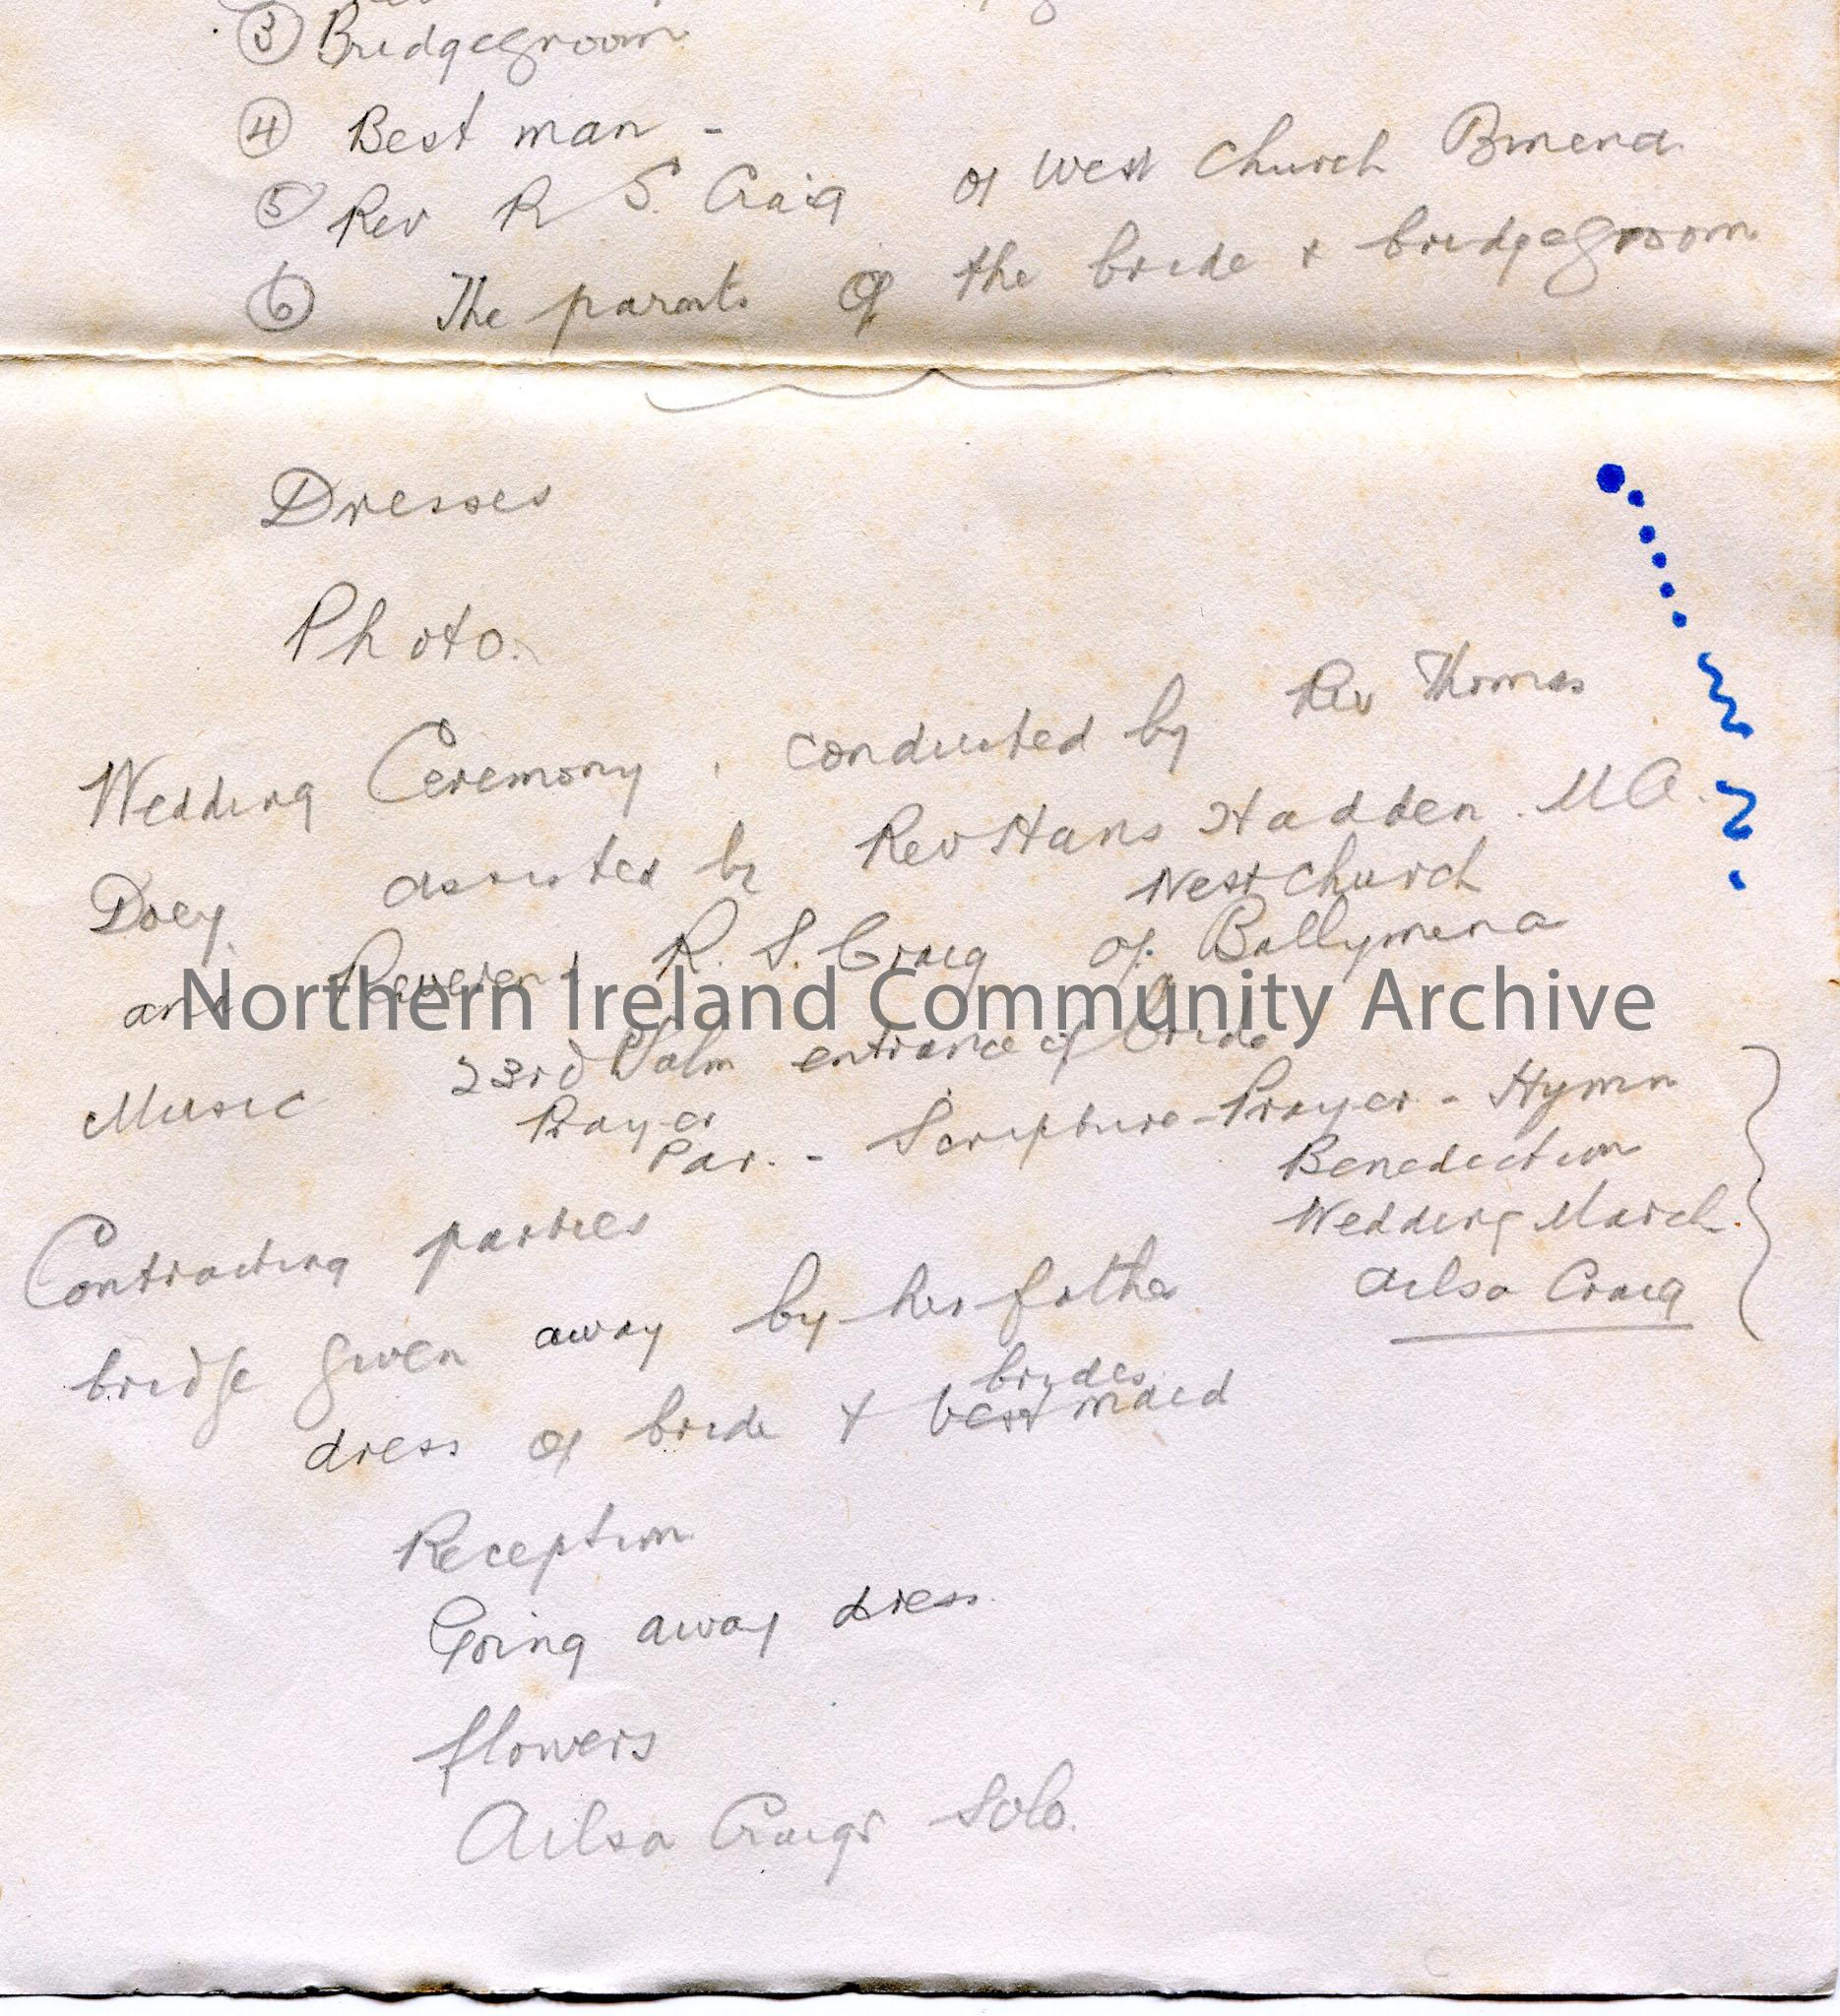 ③ Bridgegroom
④ Best man -
⑤ Rev R S. Craig of West Church Bmena
⑥ The parents of the bride & bridgegroom
Dresses
Photo.
Wedding Ceremony, conducted by Rev Thomas
Doey, assisted by Rev Hans Hadden. MA.
West Church
and Reverend R. S. Craig of Ballymena
Northern Ireland Community Archive
Music 23rd Psalm entrance of bride
Prayer
Par. - Scripture - Prayer - Hymn
Benediction
Wedding March
Ailsa Craig
Contracting parties
bridge given away by her father
brides
dress of bride & best maid
Reception
Going away dress
flowers
Ailsa Craigs Solo.